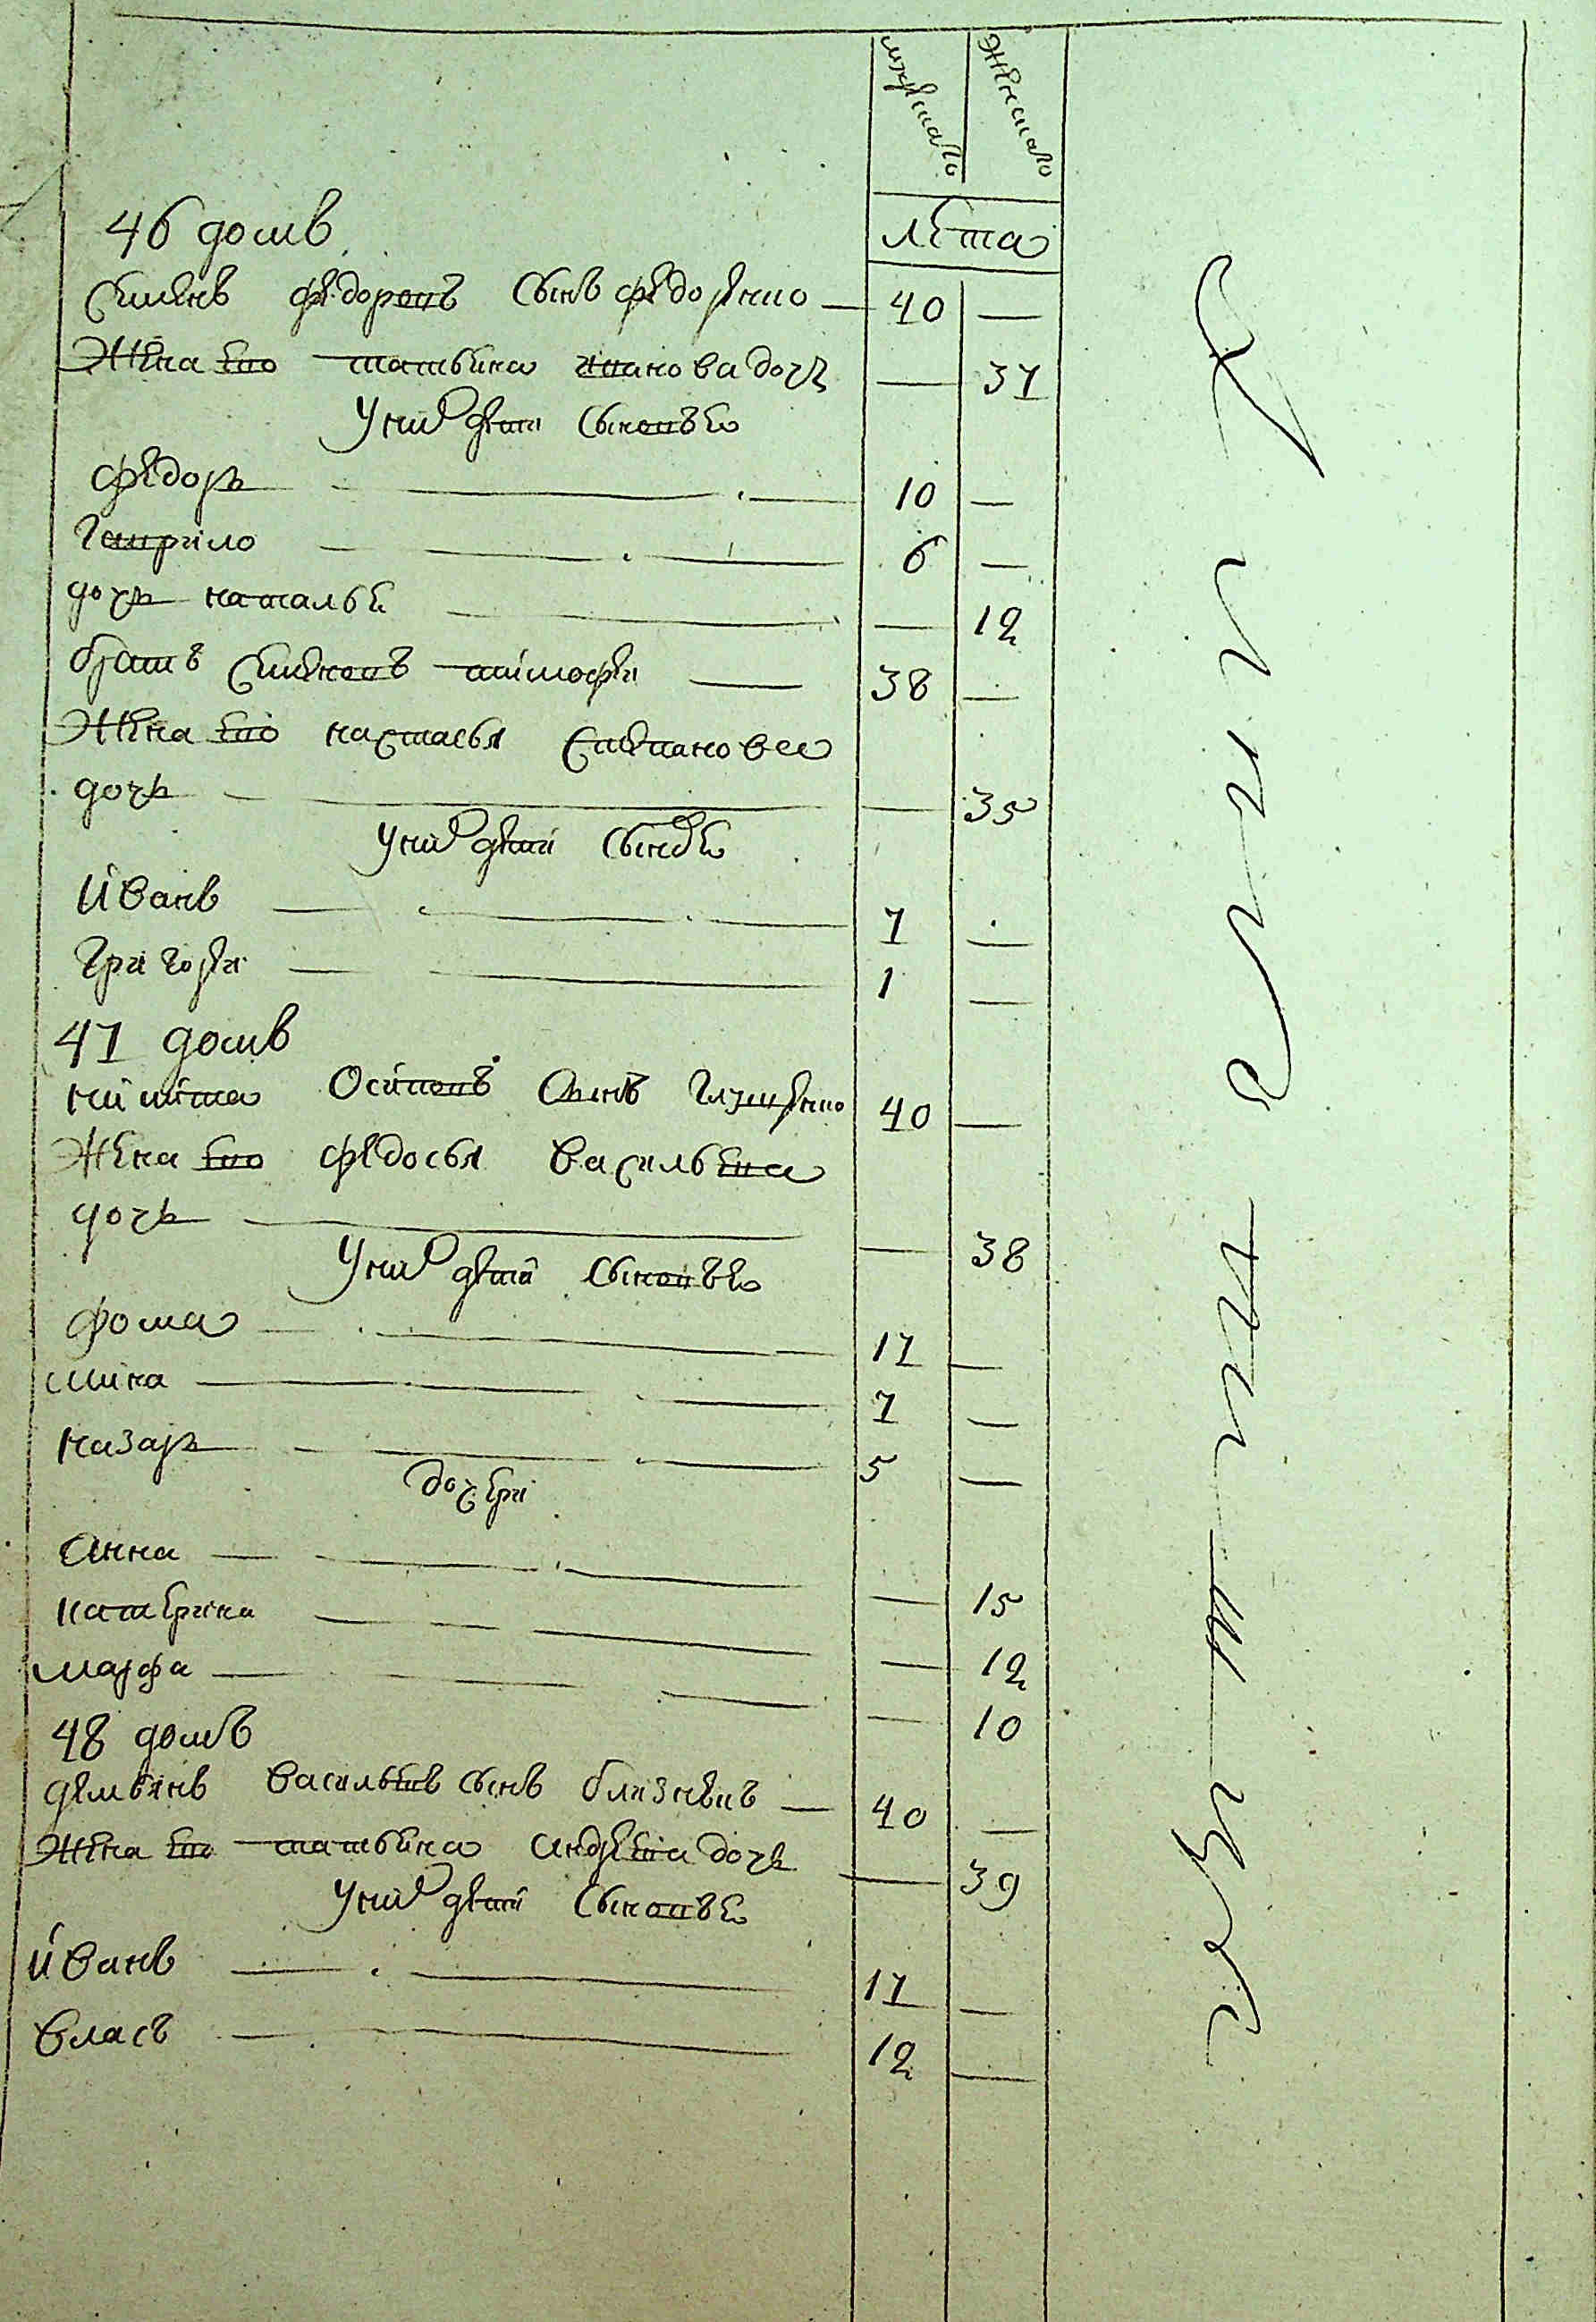 мужеска женска
лѣта
46 домъ
Семенъ федоровъ сынъ федоренко — 40 —
Жена его татьяна иванова дочь — 37
У них дети сыновья
федоръ 10 —
гаврило 6 —
дочь наталья — 12
братъ семеновъ тимофей 38 —
Жена его настасья степанова
дочь — 35
У них дети сыновья
Иванъ 7 —
григорей 1 —
47 домъ
никита Осиповъ сынъ 40 —
Жена его федосья васильева
дочь — 38
У них дети сыновья
фома 17 —
мина 7 —
назаръ 5 —
дочери
Анна — 15
катерина — 12
марфа — 10
48 домъ
демьянъ васильевъ сынъ близнецъ — 40 —
Жена его татьяна андреева дочь — 39
У них дети сыновья
Иванъ 17 —
власъ 12 —